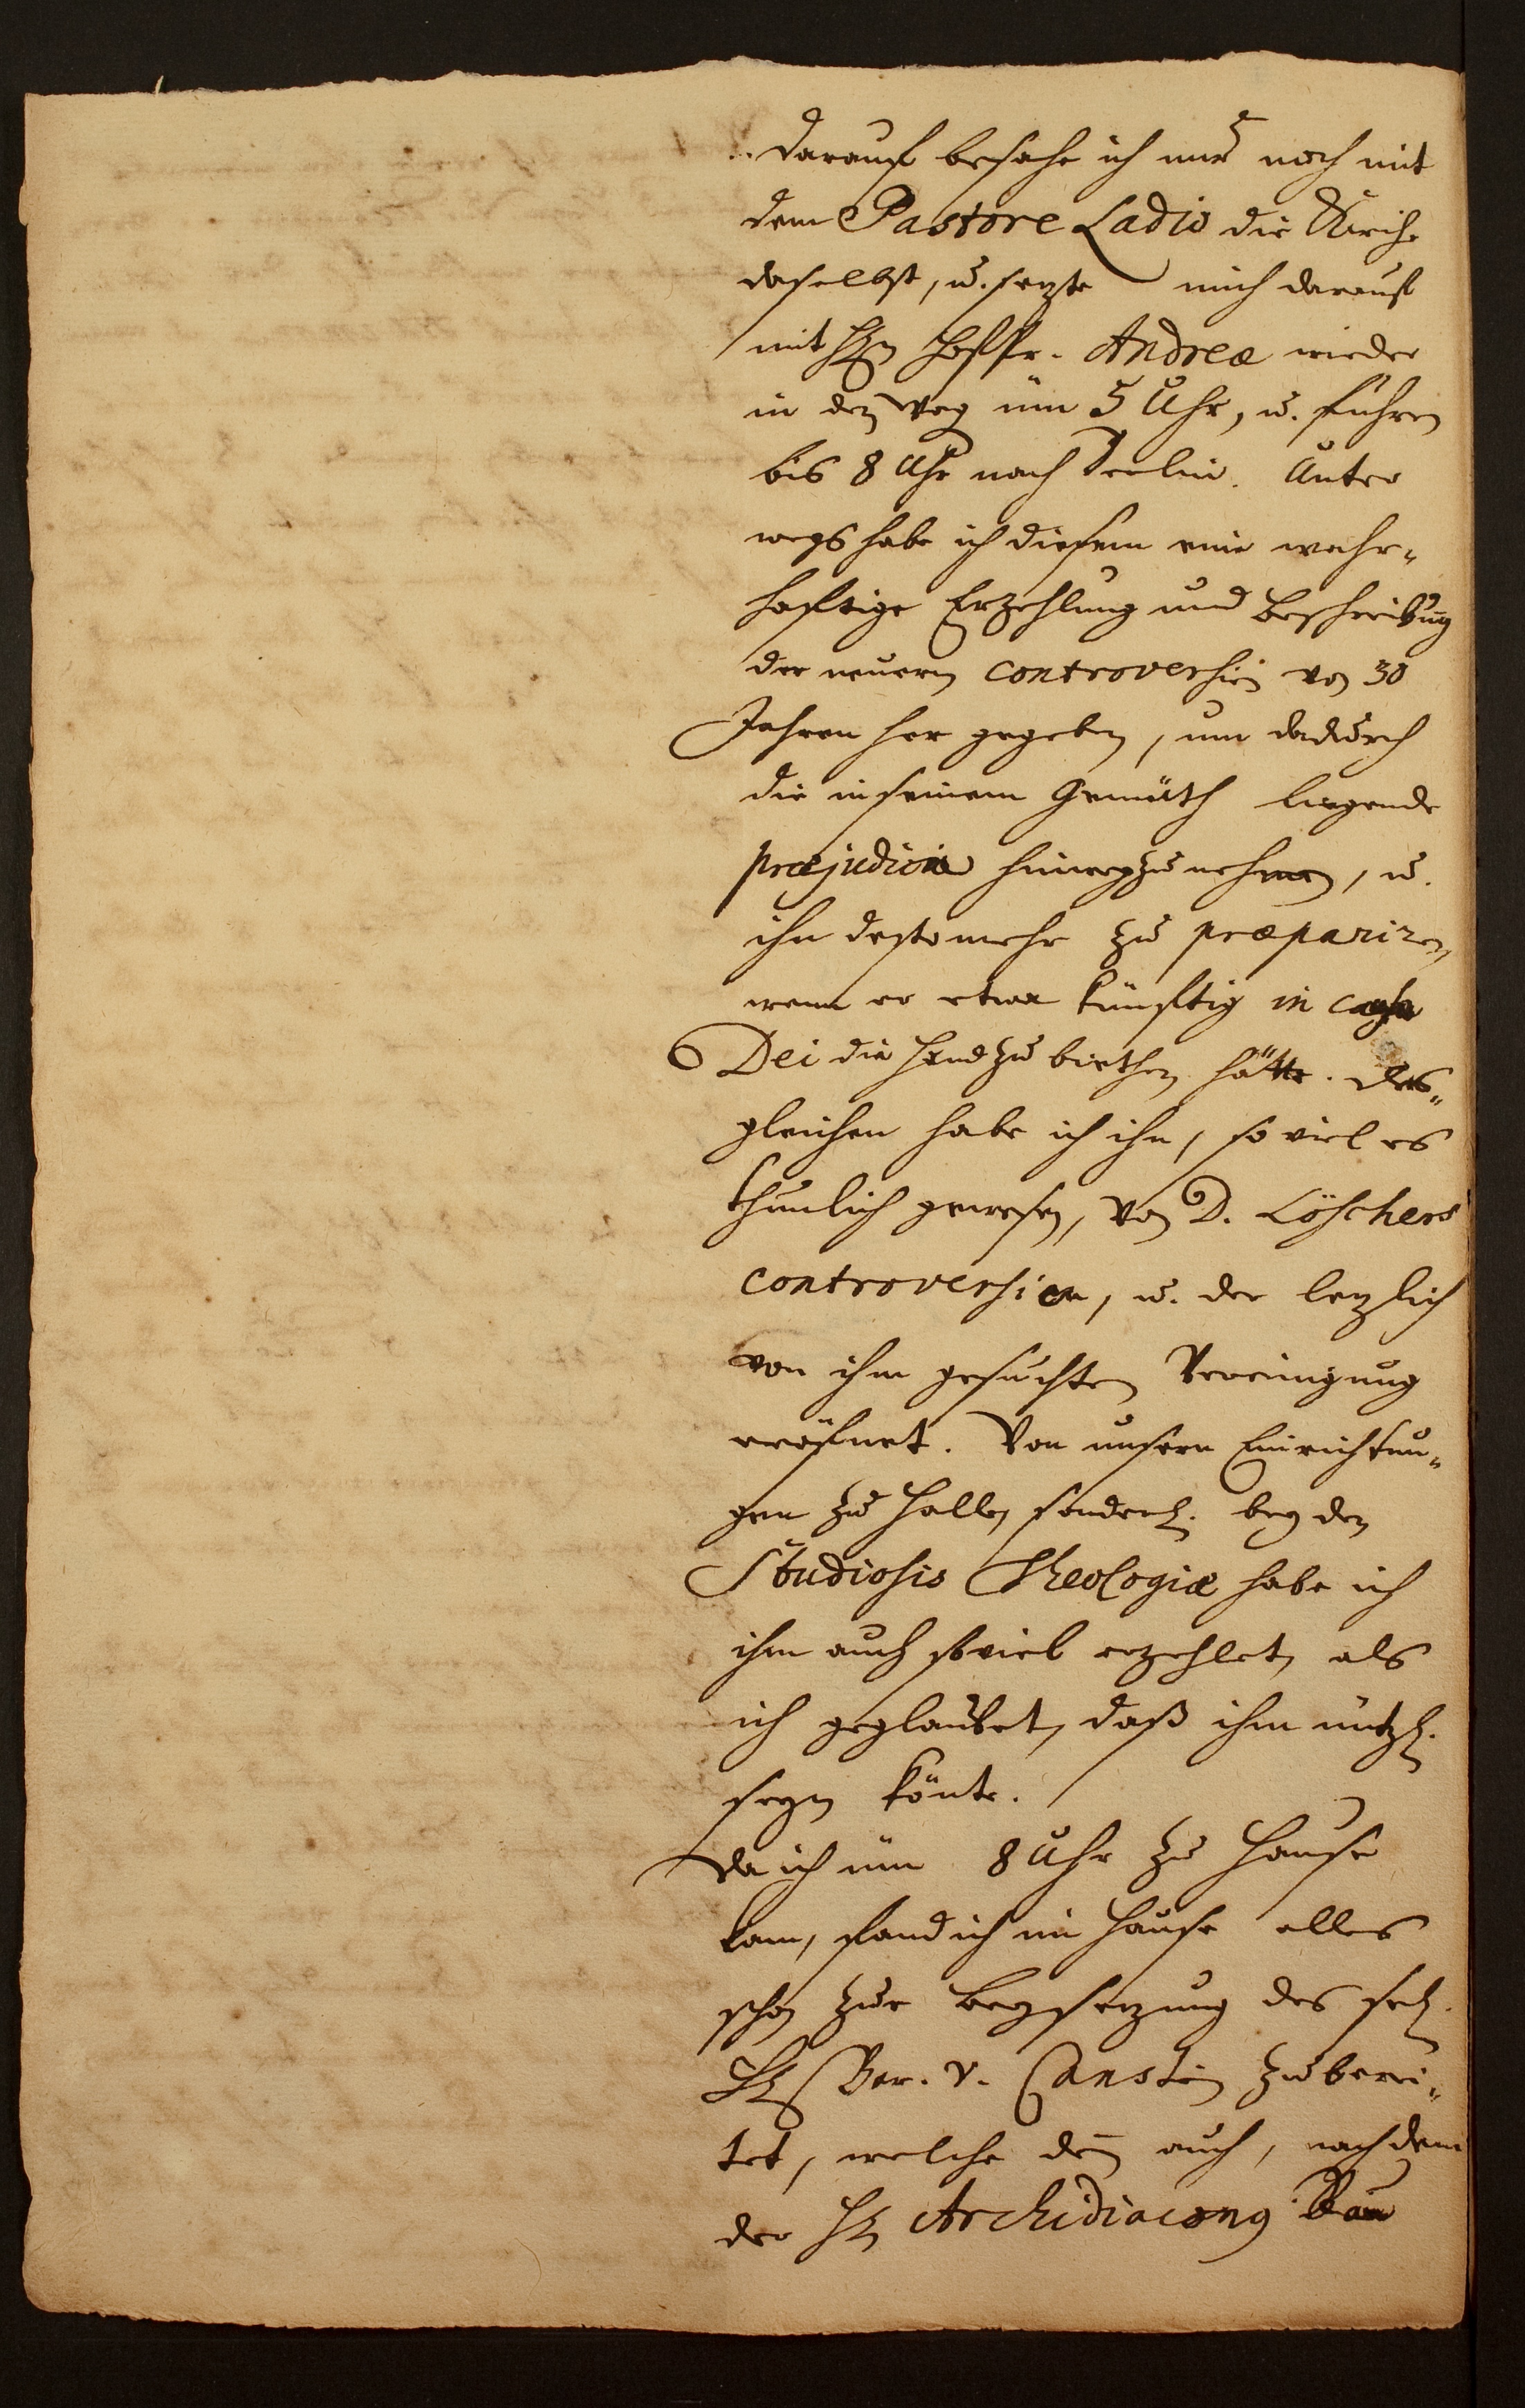 darauf besahe ich nur noch mit
dem Pastore Ladio die Kirche
daselbst, u. setzte mich darauf
mit Hn Hoffr. Andreæ wieder
in den Weg üm 5 Uhr, u. fuhren
bis 8 Uhr nach Berlin. Unter
wegs habe ich diesem eine wahr-
hafftige Erzehlung und Beschreibung
der neuern Controversien von 30
Jahren her gegeben, um dadurch
die in seinem Gemüth liegende
præjudicia hinwegzunehmen, u.
ihn destomehr zu præpariren,
wenn er etwa künfftig in causa
Dei die Hand zu biethen hätte. Des-
gleichen habe ich ihn, so viel es
thunlich gewesen, von D. Löschers
Controversien, u. der letzlich
von ihm gesuchten Vereinigung
eröfnet. Von unsern Einrichtun-
gen zu Halle, sonderl. bey den
Studiosis Theologiæ habe ich
ihm auch soviel erzehlet, als
ich geglaubet, daß ihm nützl.
seyn könte.
Da ich üm 8 Uhr zu Hause
kam, fand ich im Hause alles
schon zur Beysetzung des sel.
Hn Bar. v. Canstein zuberei-
tet, welche den auch, nachdem
der Hr Archidiaconus